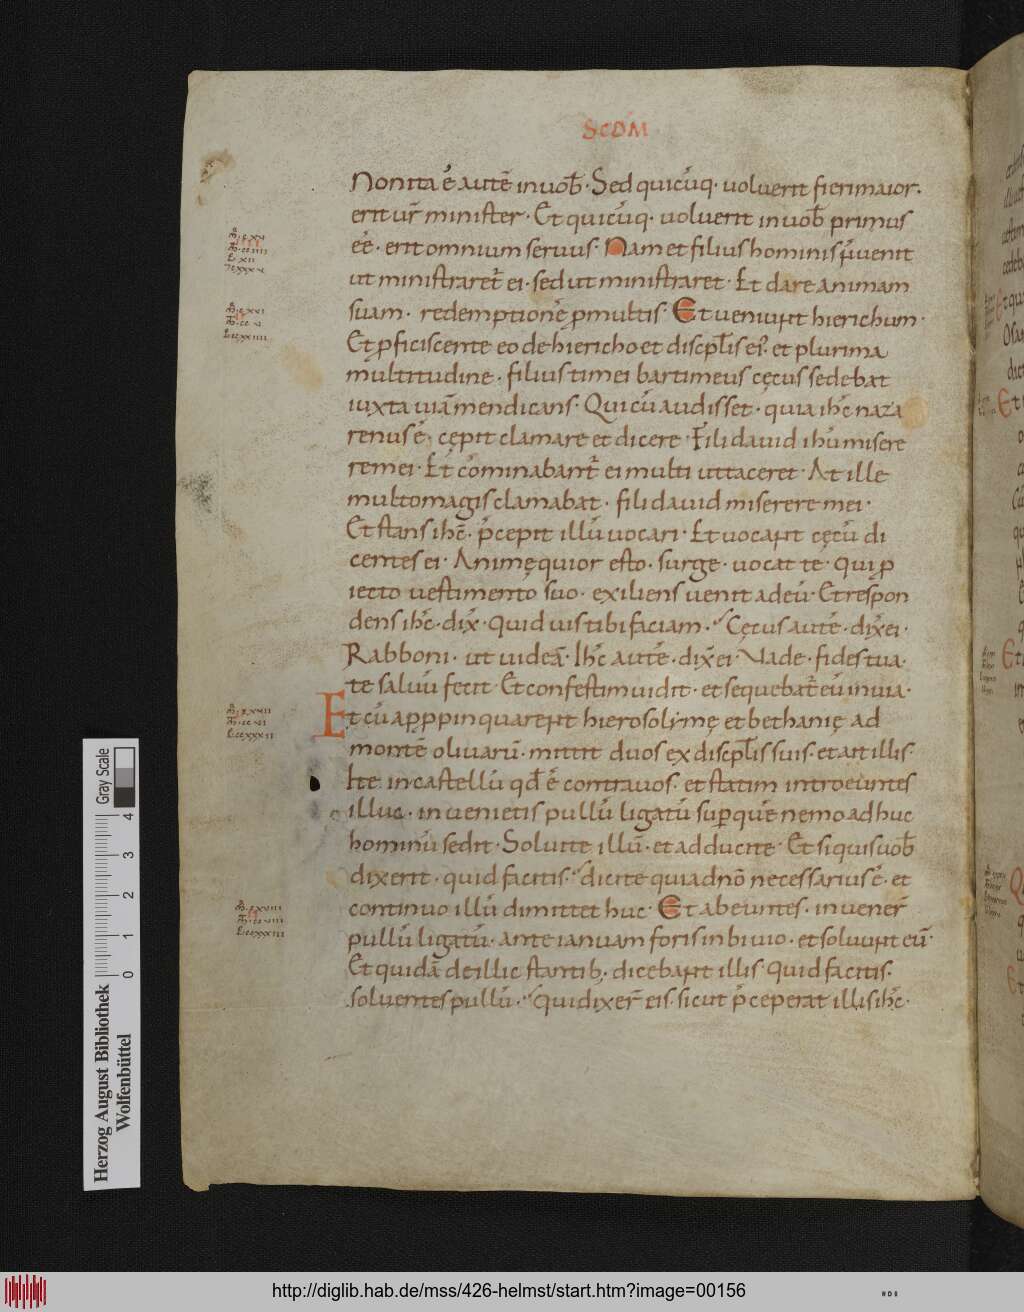 SCDM
Non ita ē̓ autē in uob̄· Sed quicūq· uoluerit fieri maior·
erit ur̄ minister· Et quicūq· uoluerit in uob̄ primus
ēē· erit omnium seruus· Nam et filius hominis n̄ uenit
ut ministraret̄ ei· sed ut ministraret· Et dare animam
suam· redemptionē ꝓ multis· Et ueniunt hierichum·
Et ꝓficiscente eo de hiericho et discpl̄is ei᾽· et plurima
multitudine· filius timei bartimeus cęcus sedebat
iuxta uiā mendicans· Qui cū audisset· quia ihc̄ naza
renus ē· cępit clamare et dicere· Fili dauid ihū misere
re mei· Et cōminabant̄ ei multi ut taceret· At ille
multo magis clamabat· fili dauid miserere mei·
Et stans ihc̄· p̄cepit illū uocari· Et uocant cęcū di
centes ei· Animęquior esto· surge· uocat te· Qui ꝓ
iecto uestimento suo· exiliens uenit ad eū· Et respon
dens ihc̄· dix̄· Quid uis tibi faciam· Cęcus autē· dix̄ ei·
Rabboni· ut uideā· Ihc̄ autē· dix̄ ei· Vade· fides tua·
te saluū fecit· Et confestim uidit· et sequebat̄ eū in uia·
Et cū appꝓpinquarent hierosolimę et bethanię ad
montē oliuarū· mittit duos ex discpl̄is suis· et ait illis·
Ite in castellū qd̄ ē contra uos· et statim introeuntes
illuc· inuenietis pullū ligatū super quē nemo adhuc
hominū sedit· Soluite illū· et adducite· Et si quis uob̄
dixerit· quid facitis· dicite quia dnō necessarius ē· et
continuo illū dimittet huc· Et abeuntes· inuener̄
pullū ligatū· ante ianuam foris in biuio· et soluunt eū·
Et quidā de illic stantib· dicebant illis· Quid facitis·
soluentes pullū· Qui dixer̄ eis· sicut p̄ceperat illis ihc̄·
Gray Scale
0 1 2 3 4
Herzog August Bibliothek
Wolfenbüttel
http://diglib.hab.de/mss/426-helmst/start.htm?image=00156